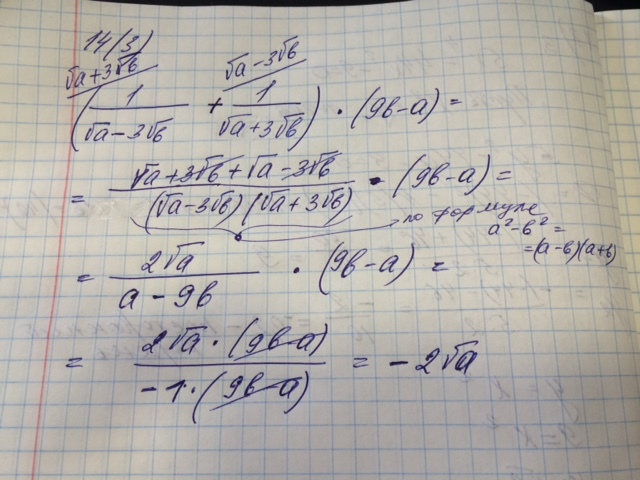 14(3)
√a+3√b √a-3√b
(1/(√a-3√b) + 1/(√a+3√b)) · (9b-a) =
= (√a+3√b+√a-3√b)/((√a-3√b)(√a+3√b)) · (9b-a) =
по формуле
a²-b² =
=(a-b)(a+b)
= 2√a/(a-9b) · (9b-a) =
= (2√a · (9b-a))/(-1·(9b-a)) = -2√a